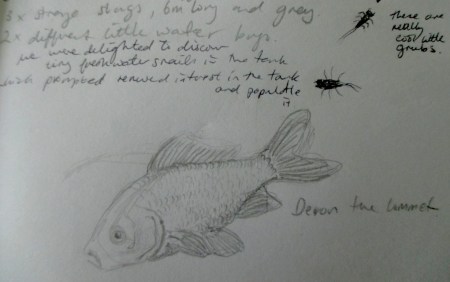 3 x strange slugs, 6mm long and grey
2 x different little water bugs.
we were delighted to discover
tiny freshwater snails in the tank
which prompted renewed interest in the tank
and populate
it
These are
really
cool little
grubs.
Devon the